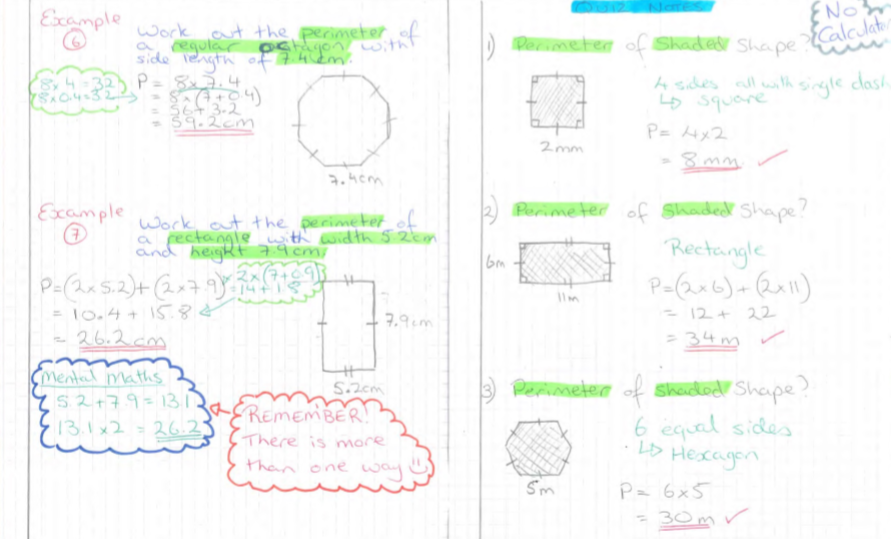 Example
6
Work out the perimeter of
a regular octagon with
side length of 7.4cm.
8x4=32
8x0.4=3.2
P= 8x7.4
= 8x(7+0.4)
= 56+3.2
= 59.2cm
7.4cm
Example
7
Work out the perimeter of
a rectangle with width 5.2cm
and height 7.9cm.
P=(2x5.2)+(2x7.9)
2x(7+0.9)
=14+1.8
= 10.4 + 15.8
= 26.2cm
7.9cm
5.2cm
Mental Maths
5.2+7.9=13.1
13.1x2=26.2
REMEMBER!
There is more
than one way
Quiz Notes
No
Calculator
1) Perimeter of Shaded Shape?
4 sides all with single dash
↳ square
2mm
P= 4x2
= 8mm ✓
2) Perimeter of Shaded Shape?
Rectangle
6m
11m
P=(2x6)+(2x11)
= 12 + 22
= 34m ✓
3) Perimeter of Shaded Shape?
6 equal sides
↳ Hexagon
5m
P= 6x5
= 30m ✓